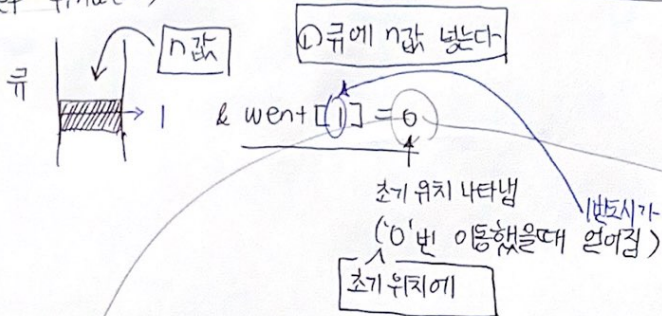 n값
① 큐에 n값 넣는다
큐
1
& went [1] = 0
초기 위치 나타냄
('0'번 이동했을때 얻어짐)
1번도시가
초기 위치에